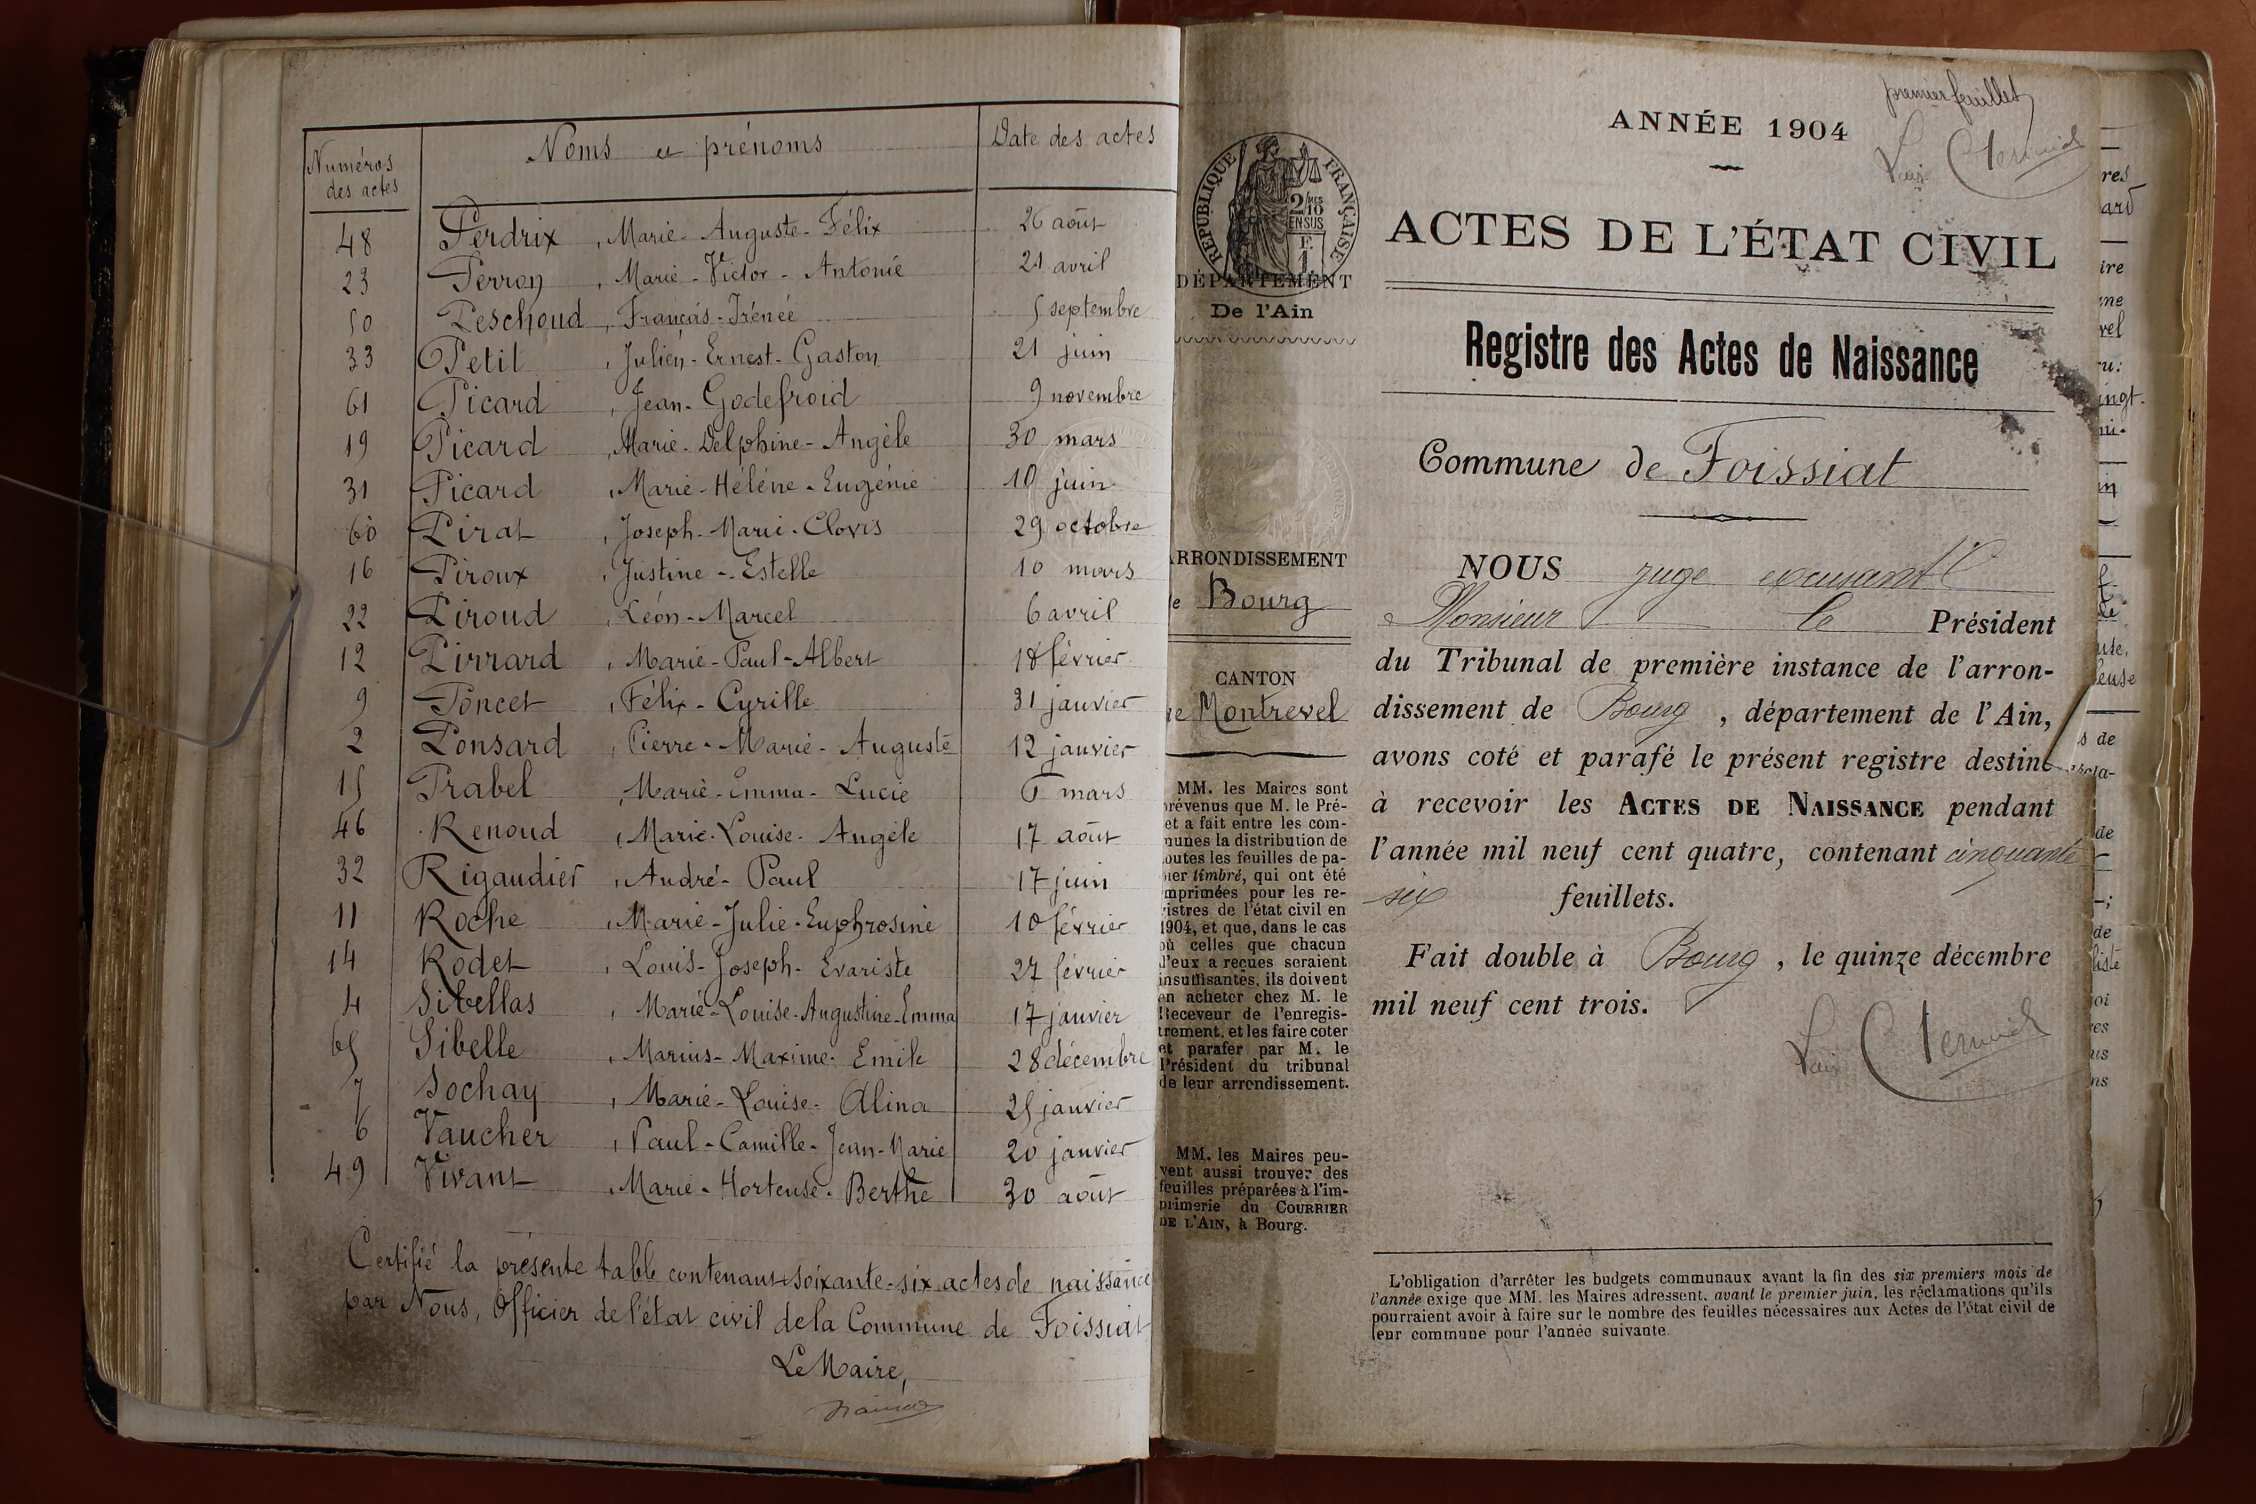 Numéros des actes
Noms et prénoms
Date des actes
48 Perdrix, Marie-Auguste-Félix 26 août
23 Perron, Marie-Victor-Antonie 21 avril
50 Peschoud, François-Irénée 5 septembre
33 Petit, Julien-Ernest-Gaston 21 juin
61 Picard, Jean-Godefroid 9 novembre
19 Picard, Marie-Delphine-Angèle 30 mars
31 Picard, Marie-Hélène-Eugénie 10 juin
60 Pirat, Joseph-Marie-Clovis 29 octobre
16 Piroux, Justine-Estelle 10 mars
22 Piroud, Léon-Marcel 6 avril
12 Pirrard, Marie-Paul-Albert 18 février
9 Poncet, Félix-Cyrille 31 janvier
2 Ponsard, Pierre-Marie-Auguste 12 janvier
15 Prabel, Marie-Emma-Lucie mars
46 Renoud, Marie-Louise-Angèle 17 août
32 Rigaudier, André-Paul 17 juin
11 Roche, Marie-Julie-Euphrosine 10 février
14 Rodet, Louis-Joseph-Evariste 27 février
4 Sibellas, Marie-Louise-Augustine-Emma 17 janvier
65 Sibelle, Marius-Maxime-Emile 28 décembre
7 Sochay, Marie-Louise-Alina 25 janvier
6 Vaucher, Paul-Camille-Jean-Marie 20 janvier
49 Vivant, Marie-Hortense-Berthe 30 août
Certifié la présente table contenant soixante-six actes de naissance
par Nous, Officier de l'état civil de la Commune de Foissiat
Le Maire,
RÉPUBLIQUE FRANÇAISE
2/10 MES
EN SUS
DÉPARTEMENT
De l'Ain
ARRONDISSEMENT
de Bourg
CANTON
de Montrevel
MM. les Maires sont
prévenus que M. le Pré-
fet a fait entre les com-
munes la distribution de
toutes les feuilles de pa-
pier timbré, qui ont été
imprimées pour les re-
gistres de l'état civil en
1904, et que, dans le cas
où celles que chacun
d'eux a reçues seraient
insuffisantes, ils doivent
en acheter chez M. le
Receveur de l'enregis-
trement, et les faire coter
et parafer par M. le
Président du tribunal
de leur arrondissement.
MM. les Maires peu-
vent aussi trouver des
feuilles préparées à l'im-
primerie du COURRIER
DE L'AIN, à Bourg.
premier feuillet
ANNÉE 1904
ACTES DE L'ÉTAT CIVIL
Registre des Actes de Naissance
Commune de Foissiat
NOUS juge
Monsieur le Président
du Tribunal de première instance de l'arron-
dissement de Bourg, département de l'Ain,
avons coté et parafé le présent registre destiné
à recevoir les ACTES DE NAISSANCE pendant
l'année mil neuf cent quatre, contenant cinquante
six feuillets.
Fait double à Bourg, le quinze décembre
mil neuf cent trois.
L'obligation d'arrêter les budgets communaux avant la fin des six premiers mois de
l'année exige que MM. les Maires adressent, avant le premier juin, les réclamations qu'ils
pourraient avoir à faire sur le nombre des feuilles nécessaires aux Actes de l'état civil de
leur commune pour l'année suivante.